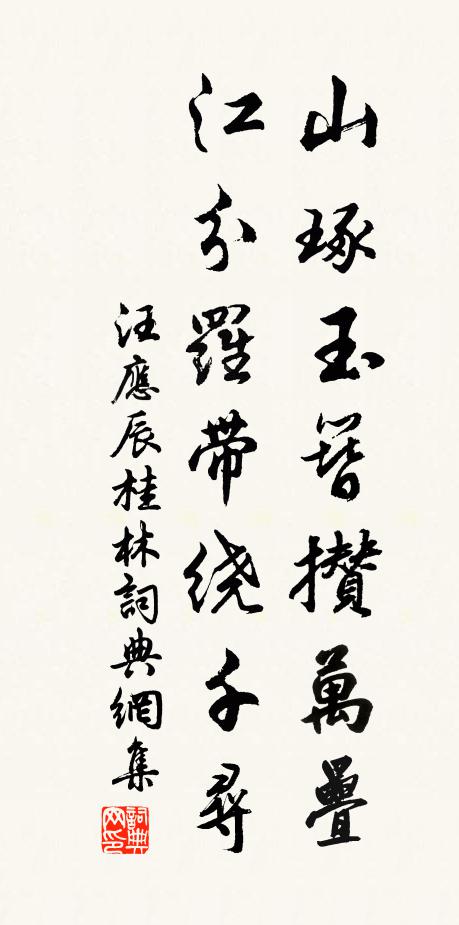 山琢玉簪攅萬疊
江分羅帶绕千尋
汪應辰桂林詞典網集
詞典
网印